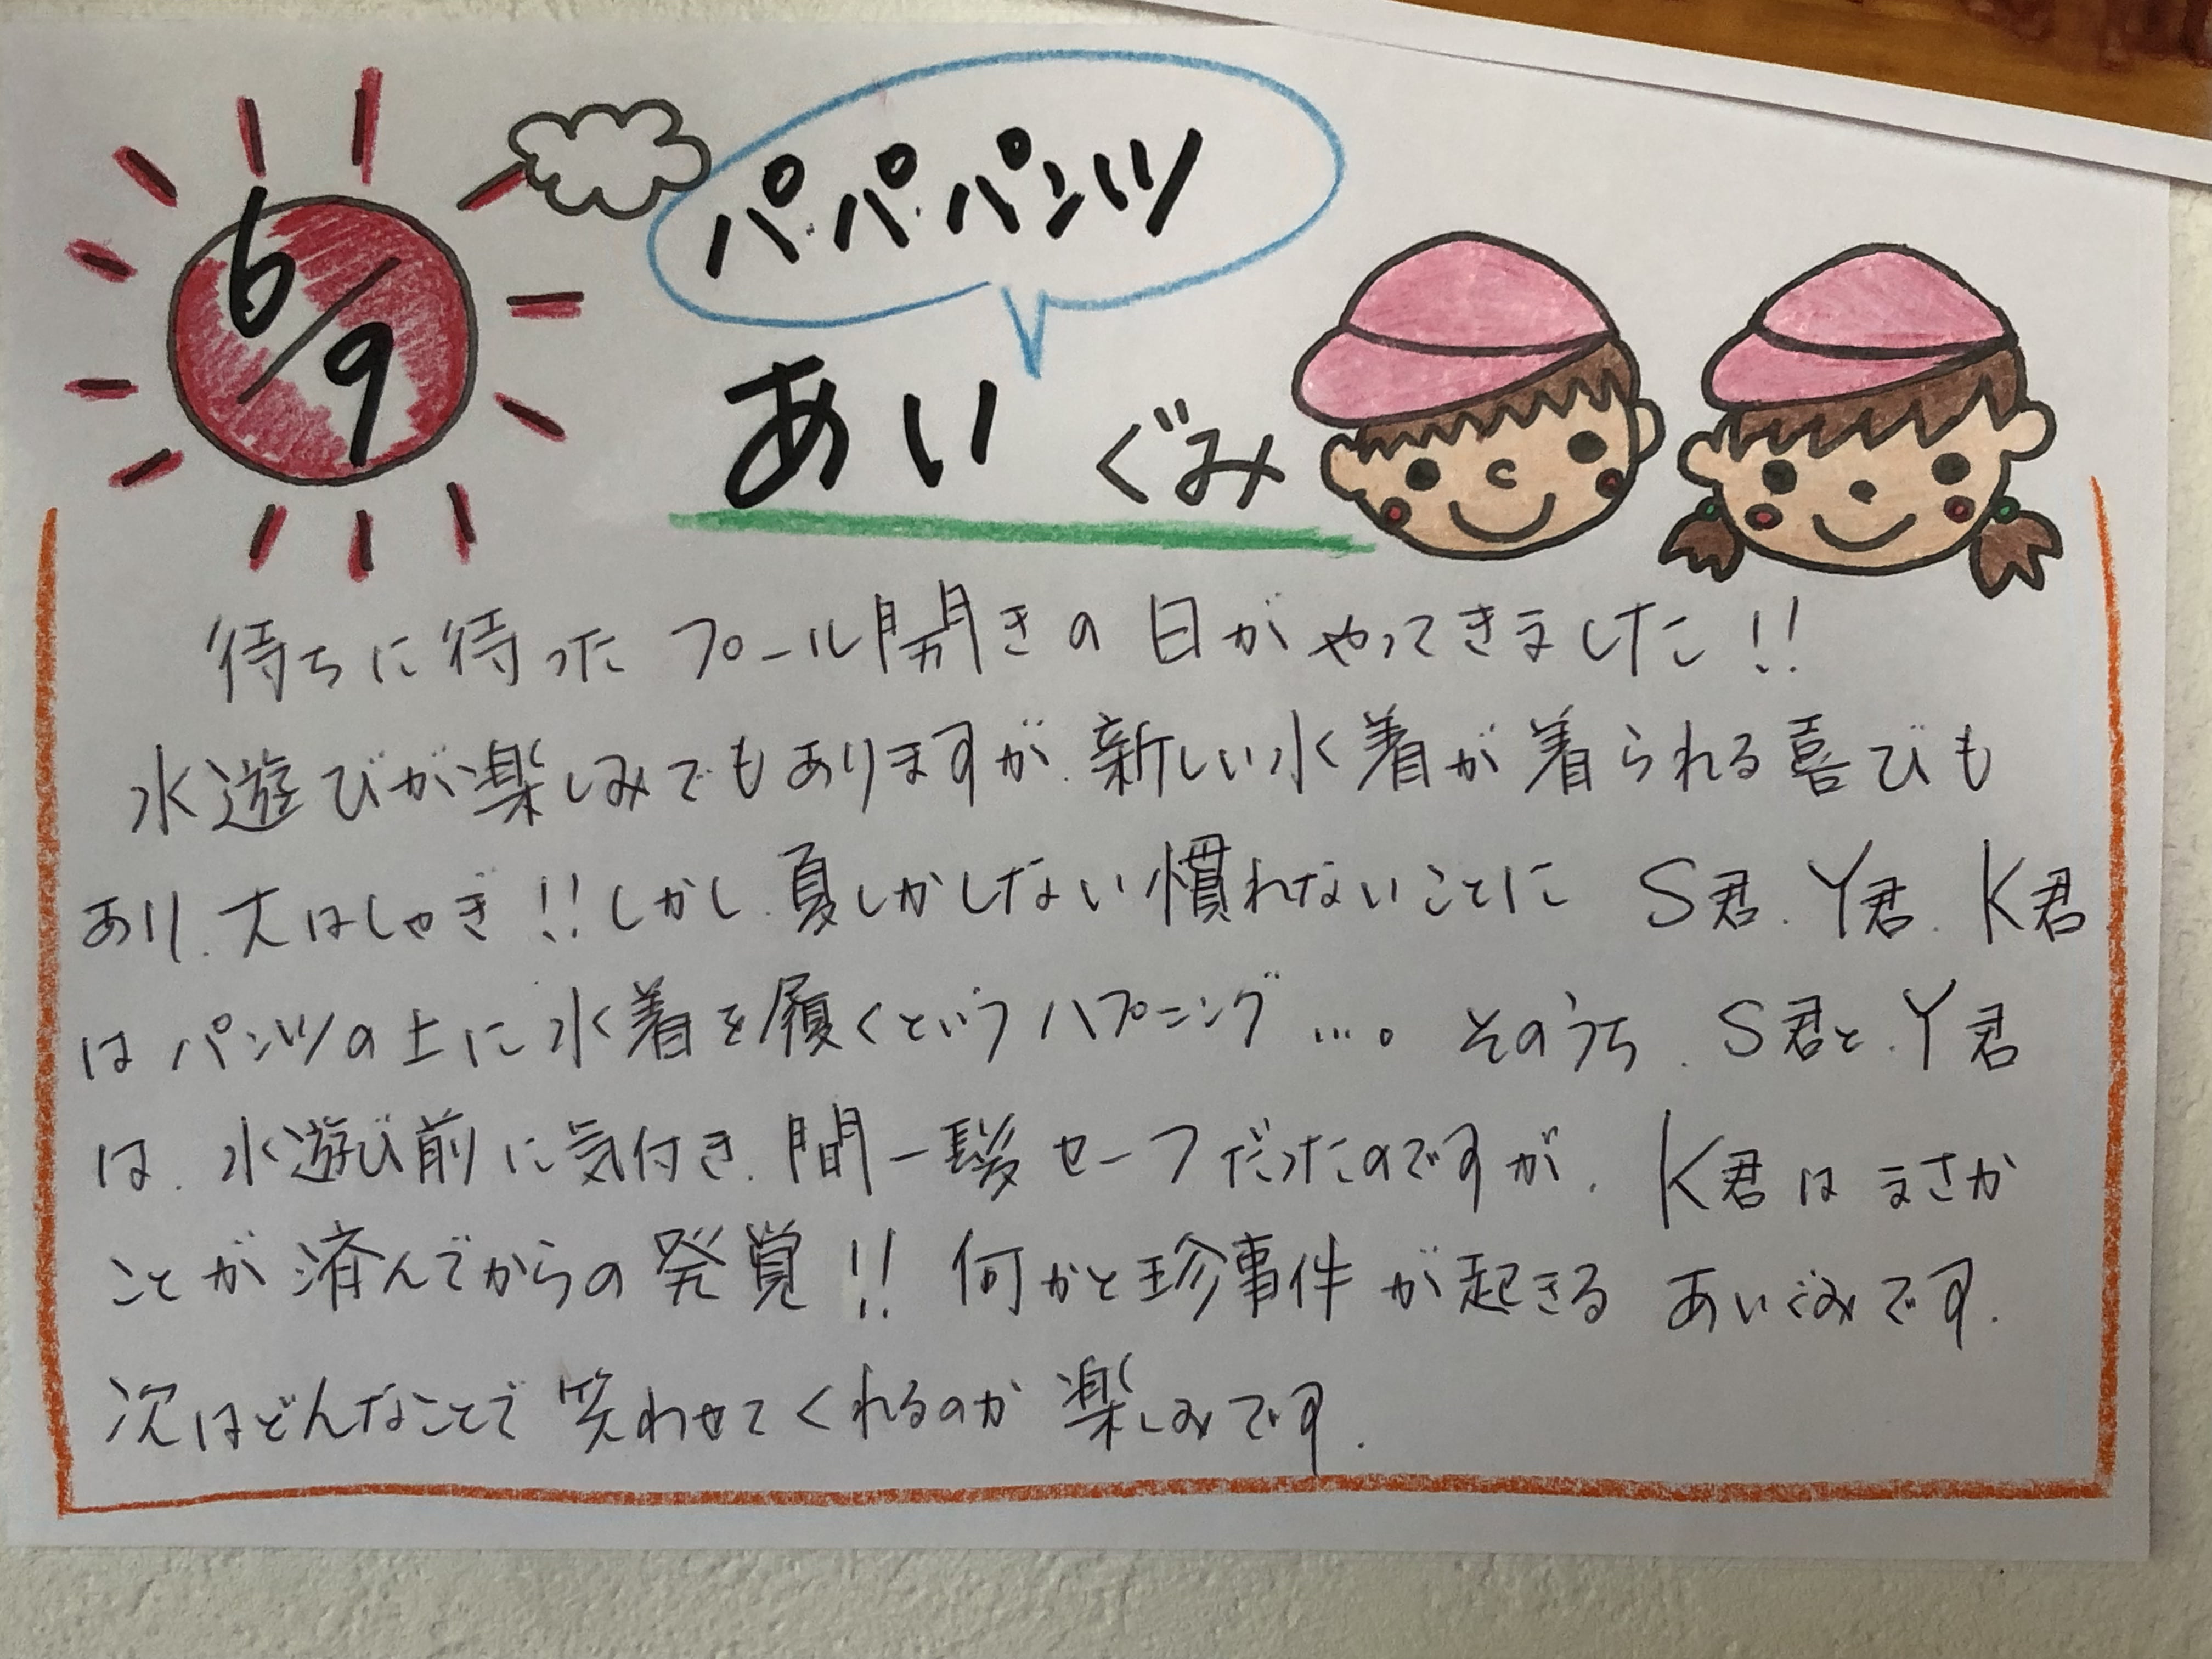 6/9
パ、パ、パンツ
あいぐみ
待ちに待ったプール開きの日がやってきました!!
水遊びが楽しみでもありますが、新しい水着が着られる喜びも
あり、大はしゃぎ!!しかし、夏しかしない慣れないことにS君、Y君、K君
はパンツの上に水着を履くというハプニング…。そのうち、S君と、Y君
は、水遊び前に気付き、間一髪セーフだったのですが、K君はまさか
ことが済んでからの発覚!!何かと珍事件が起きるあいぐみです。
次はどんなことで笑わせてくれるのか楽しみです。